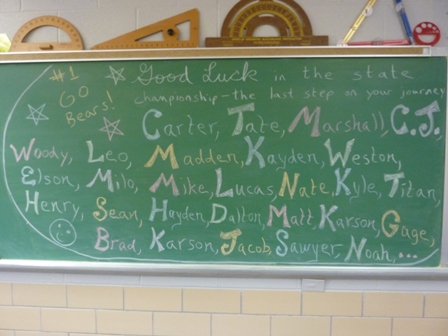 #1
GO
Bears!
Good Luck in the state
championship - the last step on your journey
Carter, Tate, Marshall, C.J.
Woody, Leo, Madden, Kayden, Weston,
Elson, Milo, Mike, Lucas, Nate, Kyle, Titan,
Henry, Sean, Hayden, Dalton, Matt, Karson, Gage,
Brad, Karson, Jacob, Sawyer, Noah,...